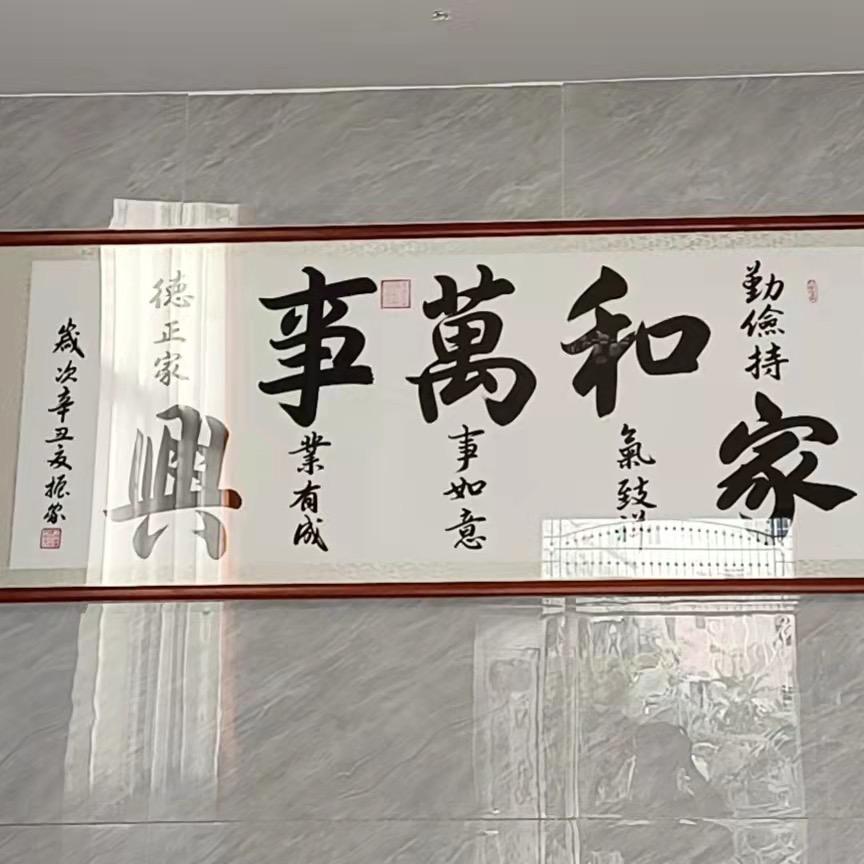 勤儉持家
和氣致祥
萬事如意
事業有成
德正家興
歲次辛丑